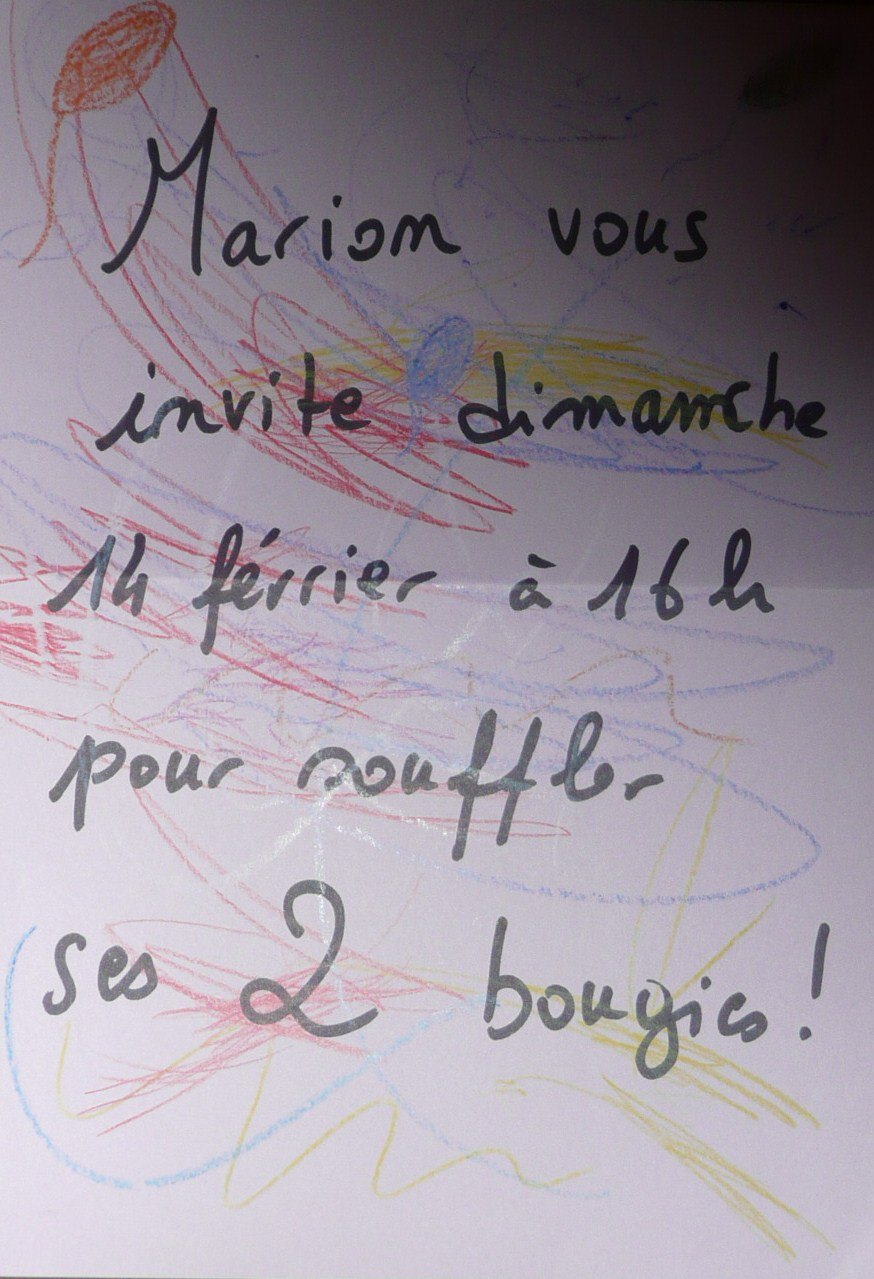 Marion vous
invite dimanche
14 février à 16h
pour souffler
ses 2 bougies !